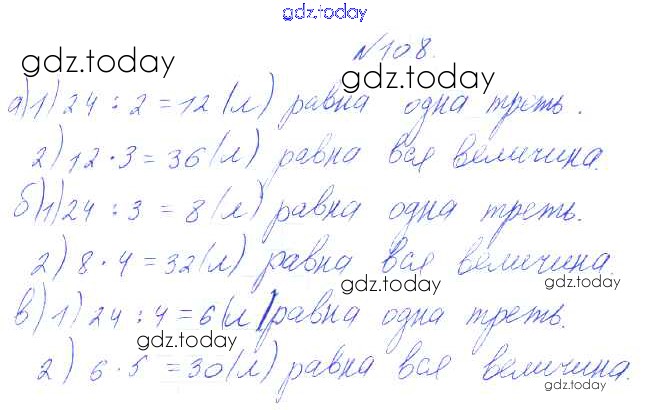 gdz.today
№108.
gdz.today gdz.today
а) 1) 24 : 2 = 12 (л) равна одна треть.
2) 12 · 3 = 36 (л) равна вся величина.
gdz.today gdz.today
б) 1) 24 : 3 = 8 (л) равна одна треть.
2) 8 · 4 = 32 (л) равна вся величина.
gdz.today
в) 1) 24 : 4 = 6 (л) равна одна треть.
gdz.today
2) 6 · 5 = 30 (л) равна вся величина.
gdz.today